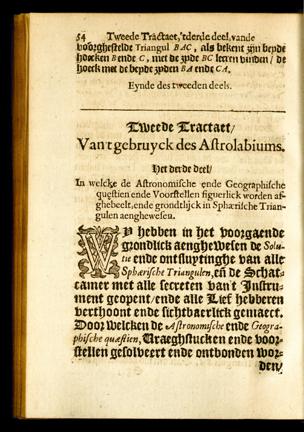 54 Tweede Tractaet,'tderde deel, vande
voorghestelde Triangul BAC, als bekent zijn beyde
hoecken B ende C, met de zyde BC leeren vinden/ de
hoeck met de beyde zyden BA ende CA.
Eynde des tweeden deels.
Tweede Tractaet/
Van't gebruyck des Astrolabiums.
Het derde deel/
In welcke de Astronomische ende Geographische
quæstien ende Voorstellen figuerlick worden af-
ghebeelt, ende grondtlijck in Sphærische Trian-
gulen aenghewesen.
WY hebben in het voorgaende
grondlick aenghewesen de Solu-
tie ende ontsluytinghe van alle
Sphærische Triangulen, eñ de Schat-
camer met alle secreten van't Instru-
ment geopent/ ende alle Lief hebberen
verthoont ende sichtbaerlick gemaect.
Door welcken de Astronomische ende Geogra-
phische quæstien, Vraeghstucken ende voor-
stellen gesolveert ende ontbonden wor-
den/